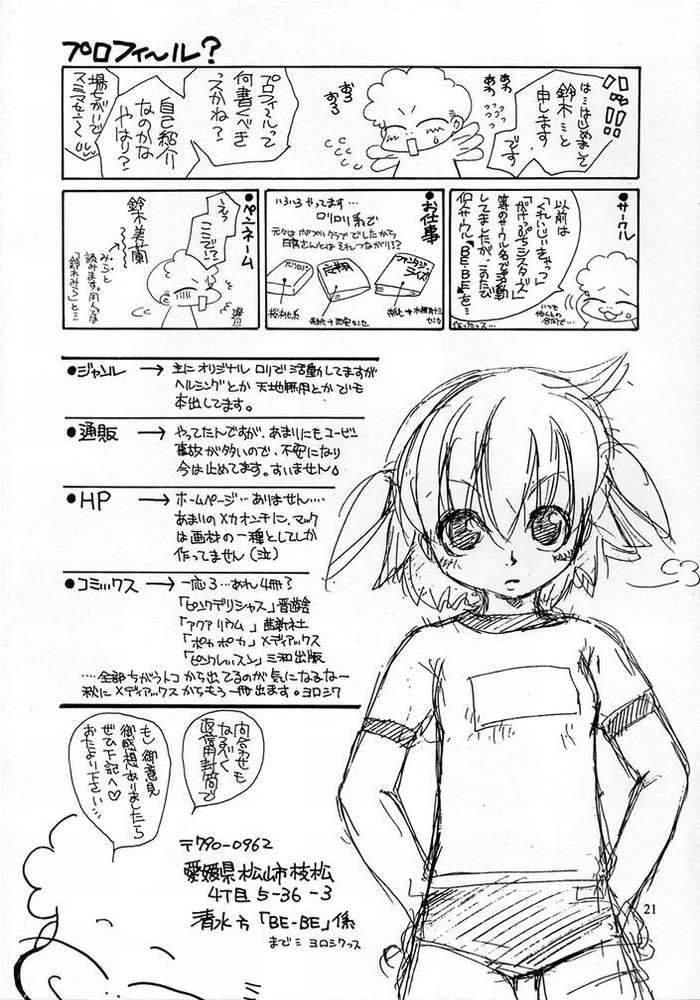 プロフィ〜ル?
は…はじめまして
鈴木…と
申します
です
あわ
あわ
おろ
おろ
プロフィールって
何書くべき
っスかね?
自己紹介
なのかな
やはり?
場ちがいで
スミマセン〜ル
●サークル
以前は
「くれいじぃきゃっつ」
「がけっぷちシスターズ」
等のサークル名で活動
してましたが、このたび
個人サークル「BE-BE」を
作ったっス…
●お仕事
いろいろやってます…
ロリロリ系で
●ペンネーム
えっ
ここで!?
鈴木美蘭
みらと
読みます。同人では
「鈴木みら」と…
●ジャンル → 主にオリジナル ロリで活動してますが
ヘルシングとか 天地無用とかでも
本出してます。
●通販 → やってたんですが、あまりにもユービン
事故が多いので、不安になり
今は止めてます。すいません
●HP → ホームページ…ありません‥‥
あまりのメカオンチに、マック
は画材の一種としてしか
作ってません(泣)
●コミックス → 一応3…あれ4冊?
「ピンクデリシャス」晋遊舎
「アクアリウム」茜新社
「ポカポカ」メディアックス
「ピンクレッスン」三和出版
‥‥全部ちがうトコから出てるのが気になるなー
秋にメディアックスからもう一冊出ます。ヨロシク
問合わせも
なるべく
返信用封筒で
もし御意見
御感想ありましたら
ぜひ下記へ♡
おたより下さい…
〒790-0962
愛媛県松山市枝松
4丁目5-36-3
清水方「BE-BE」係
まで ヨロシクっス
21